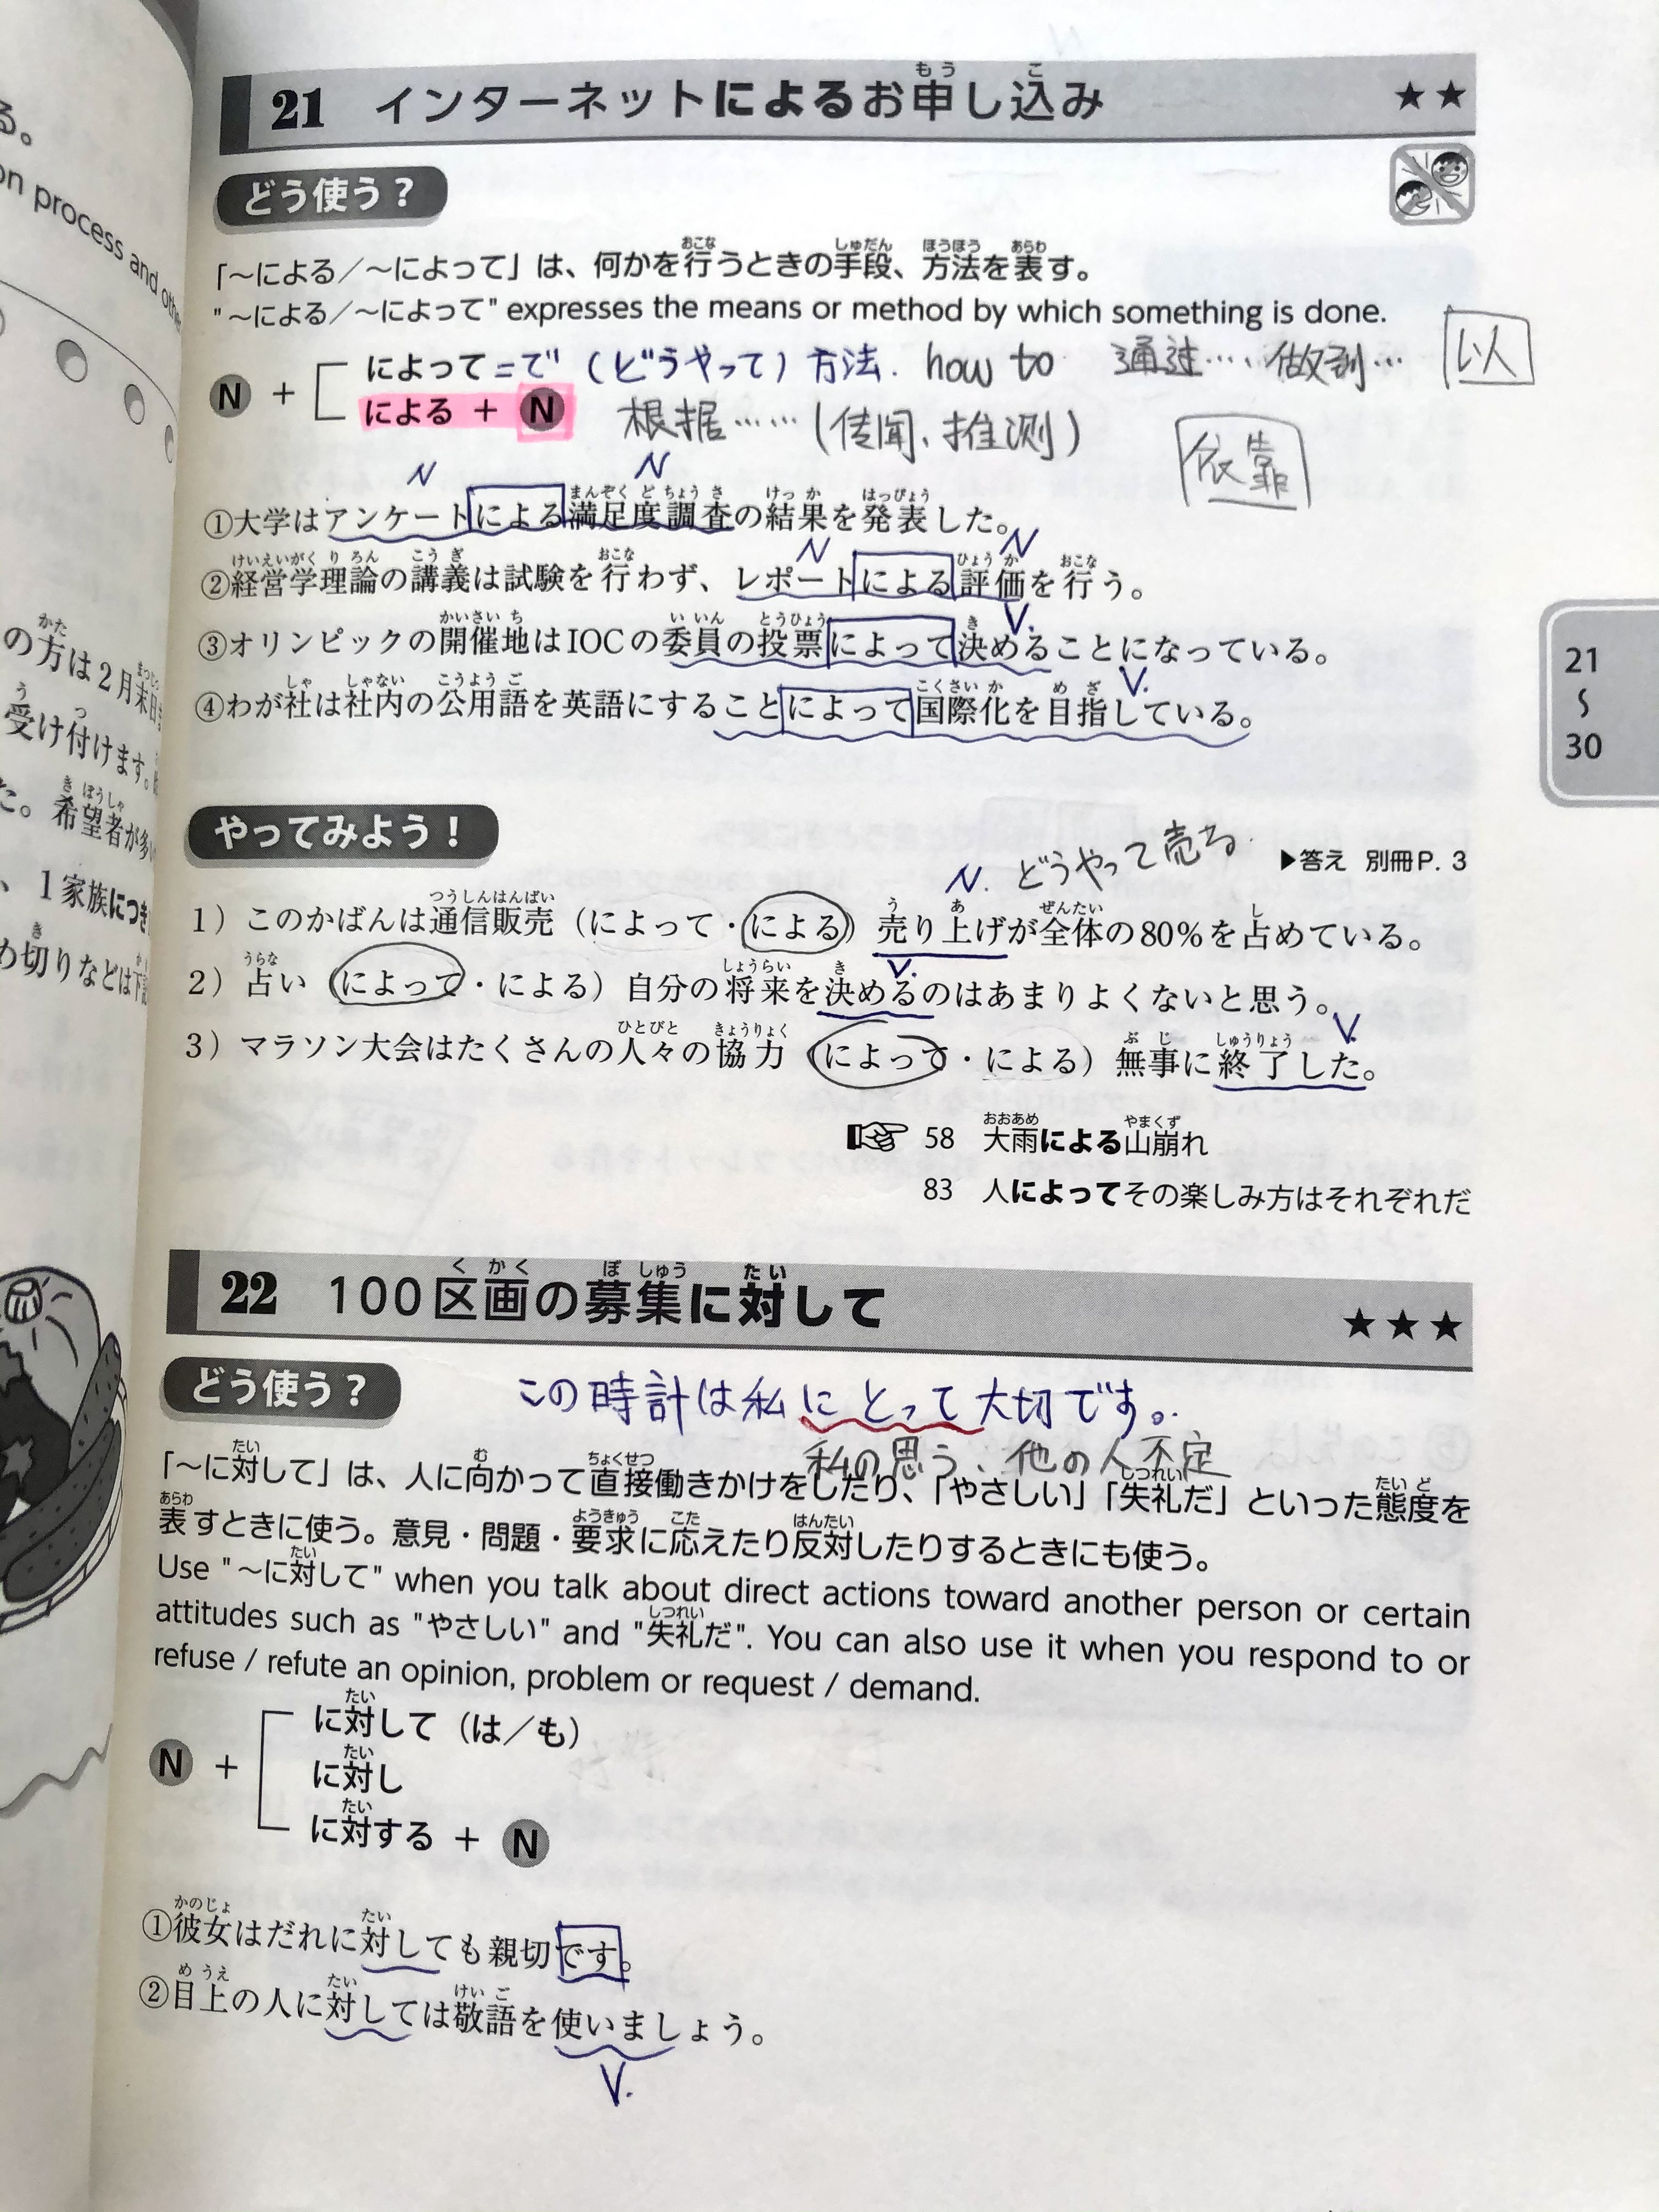 る。
on process and othe
の方は2月末日
受け付けます。
た。希望者が多
、1家族につき
め切りなどは下記
21 インターネットによるお申し込み ★★
どう使う?
「~による/~によって」は、何かを行うときの手段、方法を表す。
"~による/~によって" expresses the means or method by which something is done.
N + によって =で (どうやって) 方法. how to 通过…, 做到… 以
による + N 根据……(传闻、推测) 依靠
N N
①大学はアンケートによる満足度調査の結果を発表した。
N N
②経営学理論の講義は試験を行わず、レポートによる評価を行う。
V.
③オリンピックの開催地はIOCの委員の投票によって決めることになっている。
V.
④わが社は社内の公用語を英語にすることによって国際化を目指している。
21
~
30
やってみよう!
N. どうやって売る. ▶答え 別冊P. 3
1)このかばんは通信販売(によって・による)売り上げが全体の80%を占めている。
V.
2)占い(によって・による)自分の将来を決めるのはあまりよくないと思う。
V.
3)マラソン大会はたくさんの人々の協力(によって・による)無事に終了した。
58 大雨による山崩れ
83 人によってその楽しみ方はそれぞれだ
22 100区画の募集に対して ★★★
どう使う?
この時計は私にとって大切です。
私の思う、他の人不定
「~に対して」は、人に向かって直接働きかけをしたり、「やさしい」「失礼だ」といった態度を
表すときに使う。意見・問題・要求に応えたり反対したりするときにも使う。
Use "~に対して" when you talk about direct actions toward another person or certain
attitudes such as "やさしい" and "失礼だ". You can also use it when you respond to or
refuse / refute an opinion, problem or request / demand.
N + に対して(は/も)
に対し
に対する + N
①彼女はだれに対しても親切です。
②目上の人に対しては敬語を使いましょう。
V.